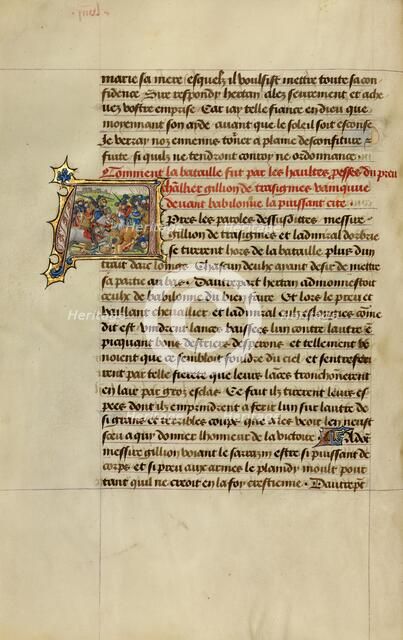 marie sa mere esquelz il voulsist mettre toute sa con
fidence Sire respondy hertan alez seurement et ache
vez vostre emprise Car iay telle fiance en dieu que
moyennant son ayde avant que le soleil soit esconse
Je verray noz ennemis tourner a plaine desconfiture
fuite si quilz ne tendront conroy ne ordonnance .
Comment la bataille fut par les haultes proesses du preu
chevalier gillion de trasignies vaincue
devant babilonne la puissant cite .
Apres les paroles dessusdittes messire
gillion de trasignies et ladmiral dorbrie
se tirerent hors de la bataille plus dun
trait darc longz Chascun deulz ayant desir de mettre
sa partie au bas . Dautre part hertan admonnestoit
ceulz de babilonne du bien faire Et lors le preu et
vaillant chevallier et ladmiral sur les destriers come
dit est vindrent lances baissees lun contre lautre
picquant bons destriers desperons et tellement
noient que ce sembloit fouldre du ciel et sentreferi
rent par telle fierete que leurs lances tronchonnerent
en lair par groz esclas Ce fait ilz tirerent leurs es
pees dont ilz emprindrent a ferir lun sur lautre de
si grans et terribles coups que a les veoir len neust
sceu a qui donner lhonneur de la victoire .
messire gillion voiant le sarrazin estre si puissant de
corps et si preu aux armes le plaindy moult pour
tant quil ne creoit en la foy crestienne . Dautrept